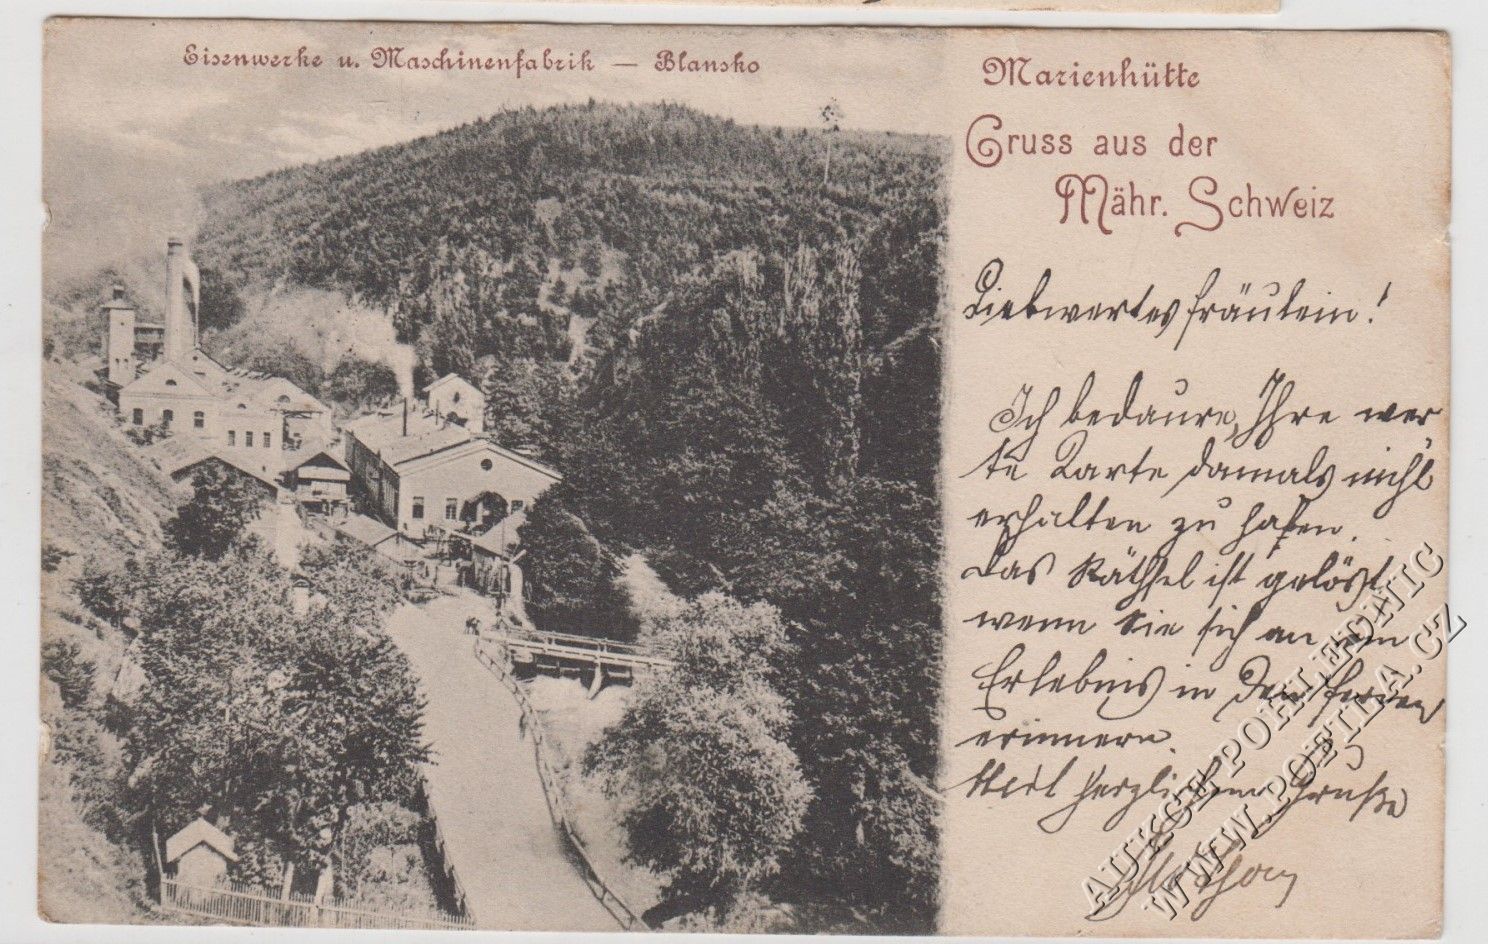 Eisenwerke u. Maschinenfabrik — Blansko
Marienhütte
Gruss aus der
Mähr. Schweiz
Liebwertes Fräulein!
Ich bedaure, Ihre wer
te Karte damals nicht
erhalten zu haben.
Das Räthsel ist gelöst,
wenn Sie sich an ein
Erlebnis in den Ferien
erinnern.
Mit herzlichem Gruße
AUKCE POHLEDNIC
WWW.POETIKA.CZ